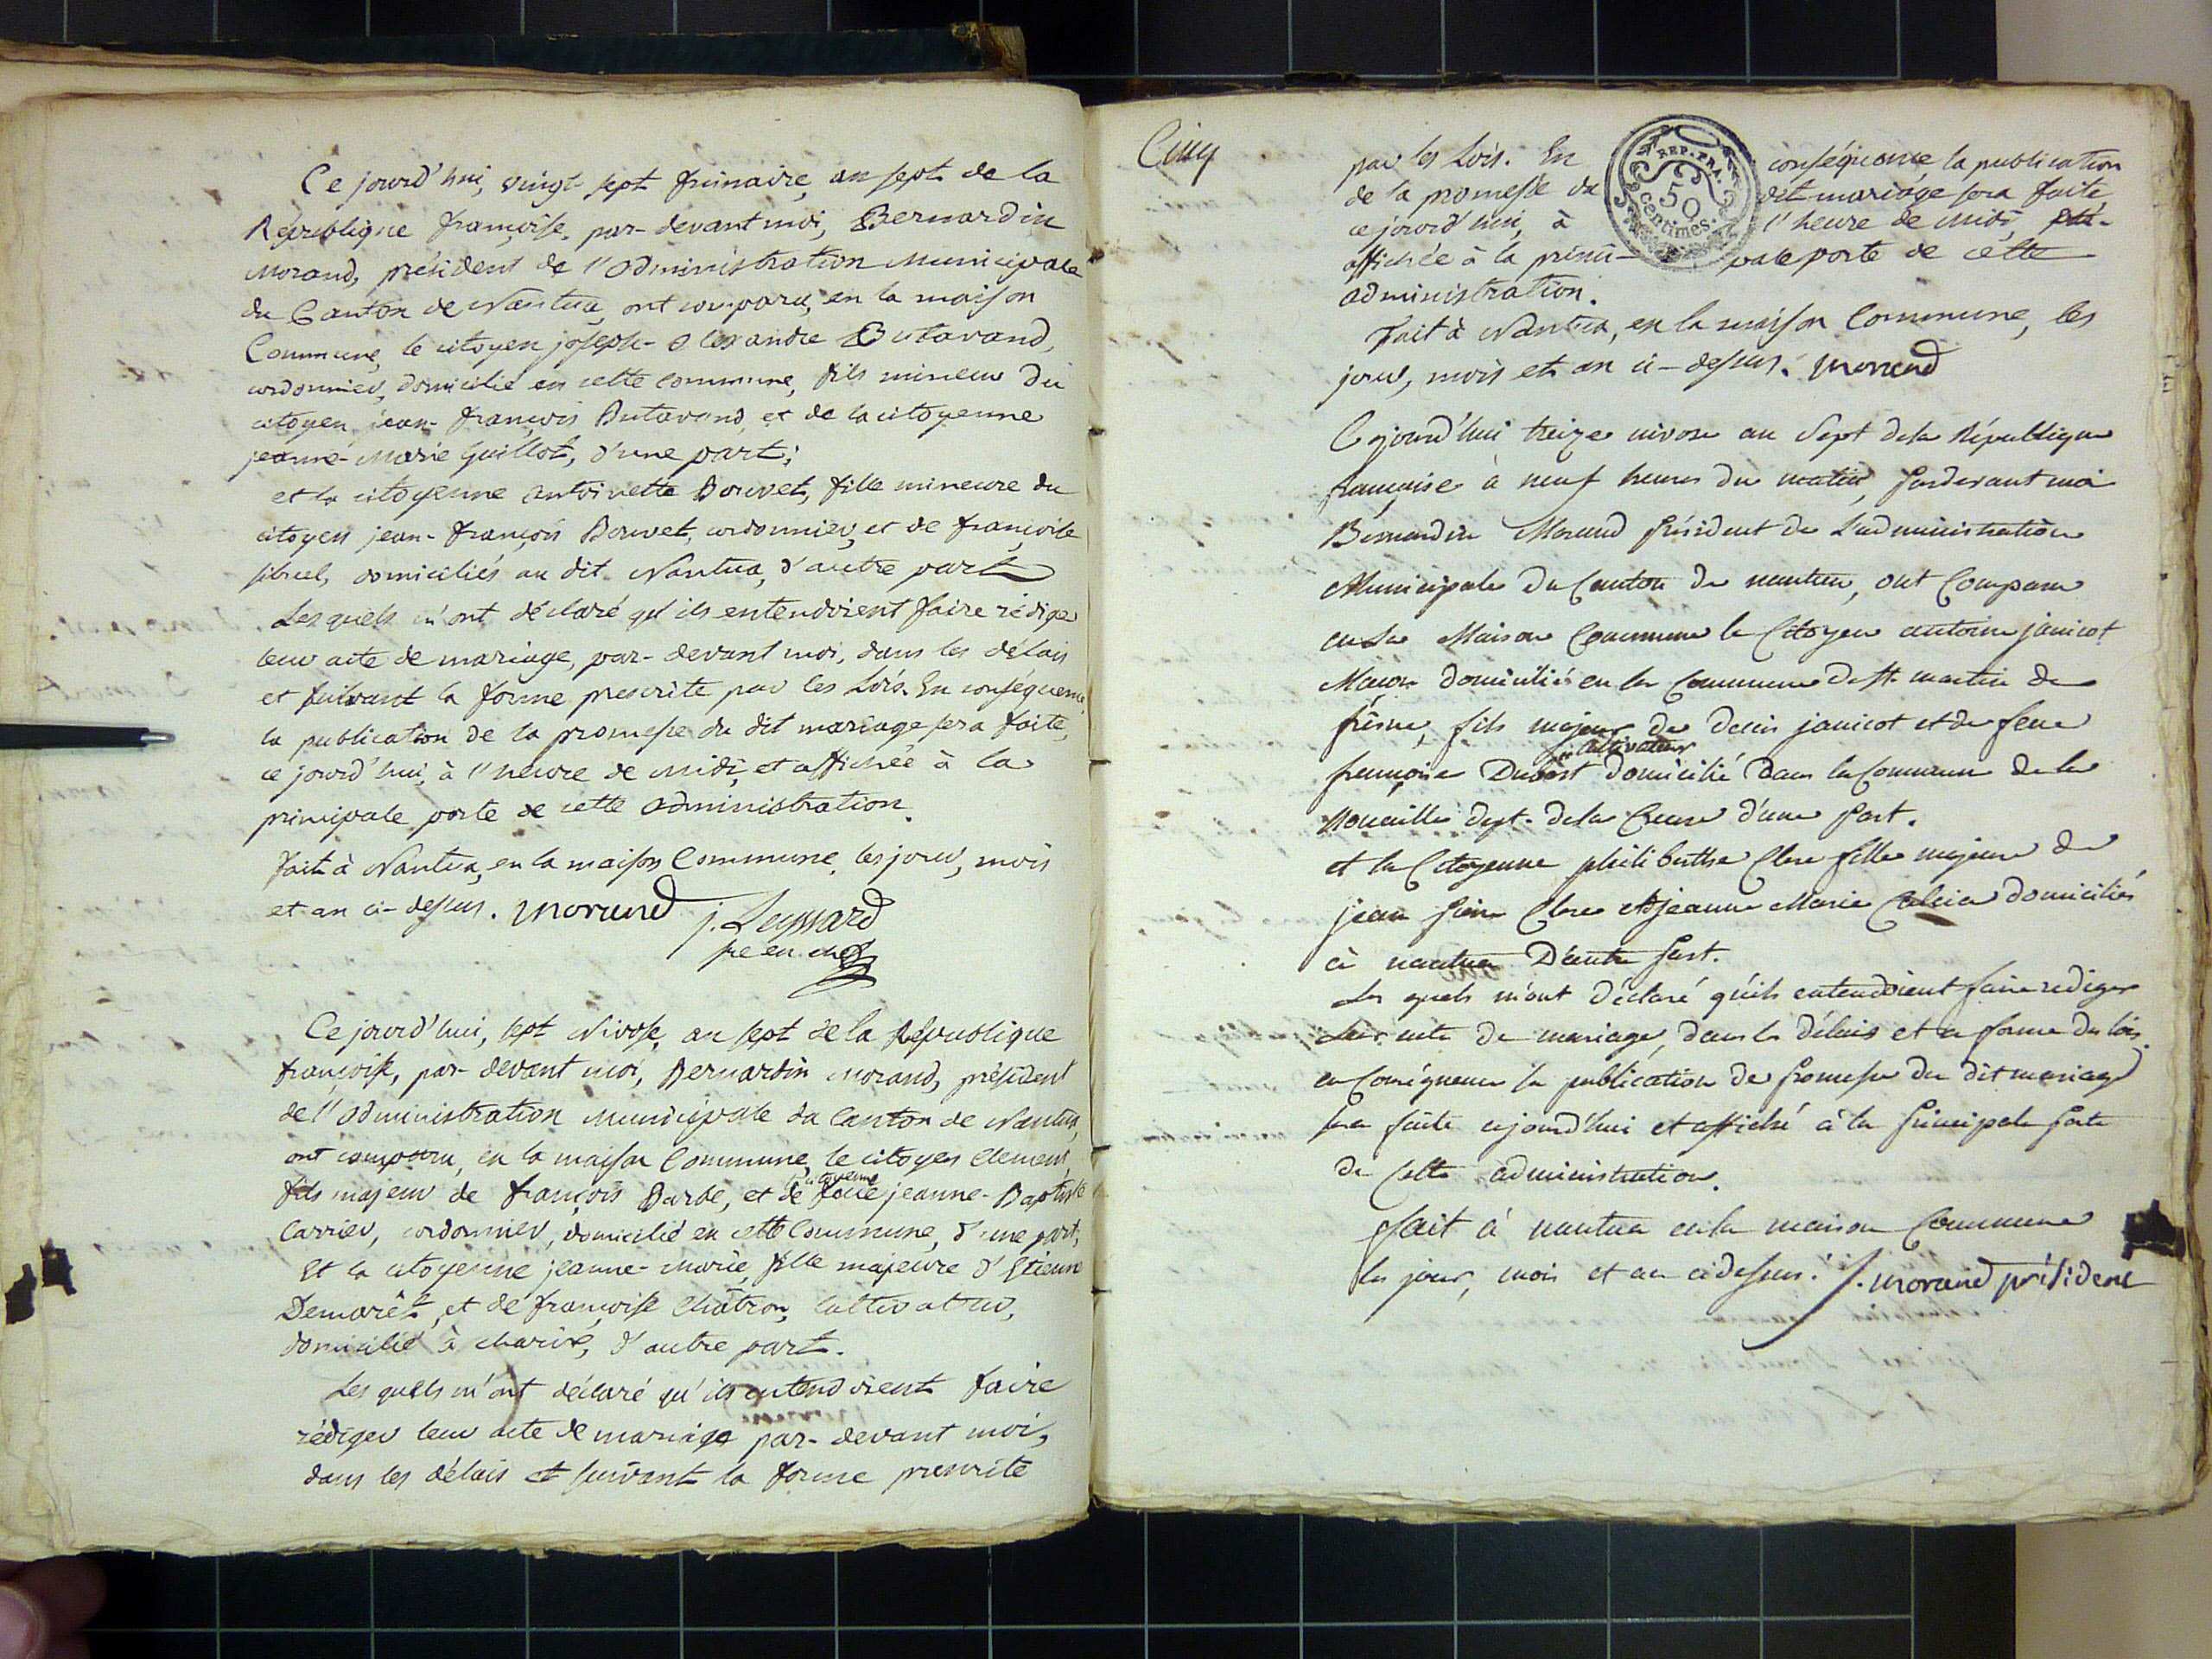 Ce jourd'hui, vingt sept frimaire, an sept de la
République françoise, par-devant moi, Bernardin
Morand, président de l'administration Municipale
du Canton de Nantua, ont comparu, en la maison
Commune, le citoyen joseph-alexandre Butavand,
cordonnier, domicilié en cette commune, fils mineur du
citoyen jean-françois Butavand, et de la citoyenne
jeanne-Marie Guillot, d'une part;
et la citoyenne antoinette Bouvet, fille mineure du
citoyen jean-françois Bouvet, cordonnier, et de françoise
domiciliés au dit Nantua, d'autre part
Lesquels m'ont déclaré qu'ils entendoient faire rédiger
leur acte de mariage, par-devant moi, dans les délais
et suivant la forme prescrite par les Loix. En conséquence,
la publication de la promesse du dit mariage sera faite,
ce jourd'hui, à l'heure de Midi, et affichée à la
principale porte de cette administration.
fait à Nantua, en la maison Commune, les jour, mois
et an ci-dessus. Morand j.
Ce jourd'hui, sept Nivose, an sept de la République
françoise, par-devant moi, Bernardin Morand, président
de l'administration Municipale du Canton de Nantua,
ont comparu, en la maison Commune, le citoyen Clement,
la citoyenne
fils majeur de françois Barbe, et de jeanne-Baptiste
Carrier, cordonnier, domicilié en cette Commune, d'une part;
Et la citoyenne jeanne-Marie, fille majeure d'Etienne
Demarêt, et de françoise Châtron, cultivateur,
domicilié à charix, d'autre part.
Les quels m'ont déclaré qu'ils entendoient faire
rédiger leur acte de mariage par-devant moi,
dans les délais et suivant la forme prescrite
Cinq
par les Loix. En conséquence, la publication
de la promesse du dit mariage sera faite
ce jourd'hui, à l'heure de Midi,
affichée à la princi-pale porte de cette
administration.
REP. FRA.
50
centimes.
Fait à Nantua, en la maison Commune, les
jour, mois et an ci-dessus. Morand
Cejourd'hui treize nivose an Sept dela République
française à neuf heures du matin, pardevant moi
Bernardin Morand Président de L'administration
Municipale du Canton de nantua, ont Comparu
en La Maison Commune le Citoyen antoine janicot
Maçon domicilié en la Commune de St. martin du
frêne, fils majeur de janicot et de feue
cultivateur
françoise Dubost domicilié dans la Commune de la
Nouaille dept. dela Creuse d'une Part.
et la Citoyenne philiberthe Clere fille majeure de
jean Pierre Clere et jeanne Marie domiciliés
à nantua D'autre part.
Les quels m'ont déclaré qu'ils entendoient faire rediger
leur acte de mariage, dans les délais et en forme des loix.
en Conséquence la publication de promesse du dit mariage
sera faite cejourd'hui et affiché à la Principale porte
de Cette administration.
fait à nantua en la maison Commune
les jour, mois et an cidessus. Morand président